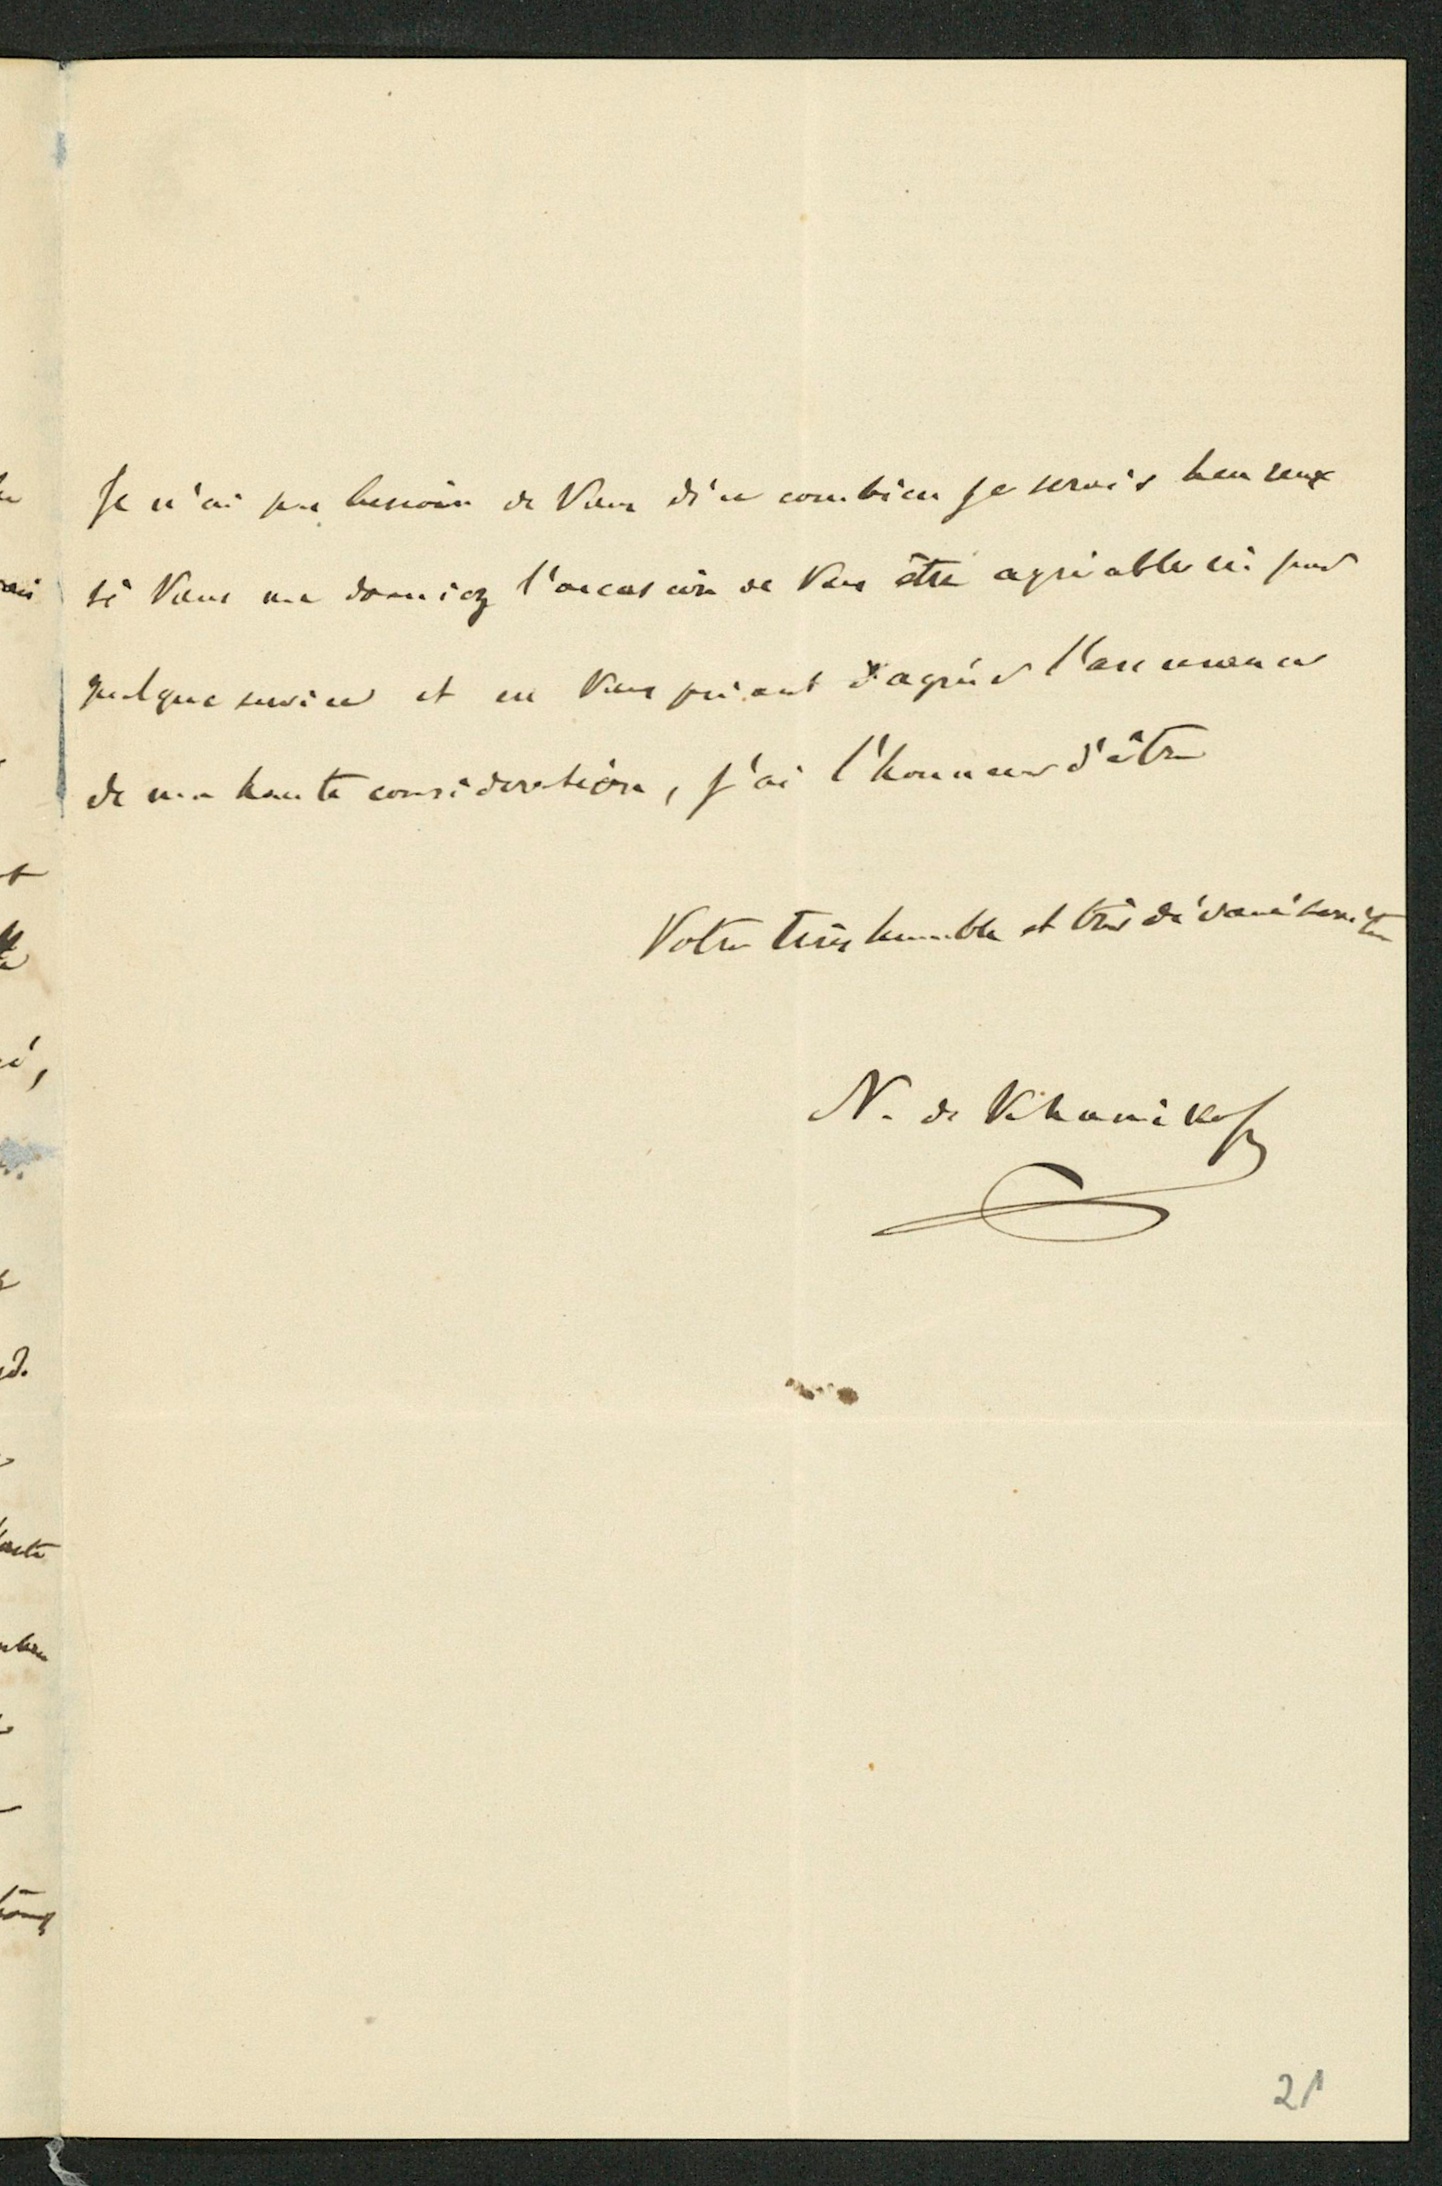 Je n'ai pas besoin de Vous dire combien je serais heureux
si Vous me donniez l'occasion de Vous être agréable ici pour
quelque service et en Vous priant d'agréer l'assurance
de ma haute considération, j'ai l'honneur d'être
Votre très humble et très dévoué serviteur
N. de Khanikoff
21